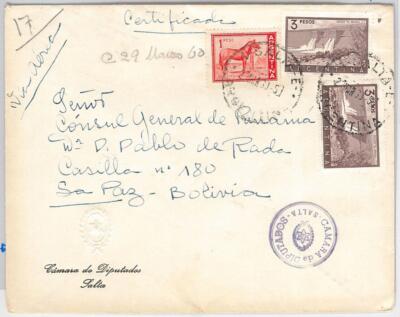 17
Certificada
Via Aérea
@ 29 Marzo 60
1 PESO
ARGENTINA
3
PESOS
ARGENTINA
3
PESOS
ARGENTINA
SALTA
Señor
Cónsul General de Panama
D. Pablo de Rada
Casilla nº 180
La Paz - Bolivia
CAMARA de DIPUTADOS - SALTA -
Cámara de Diputados
Salta